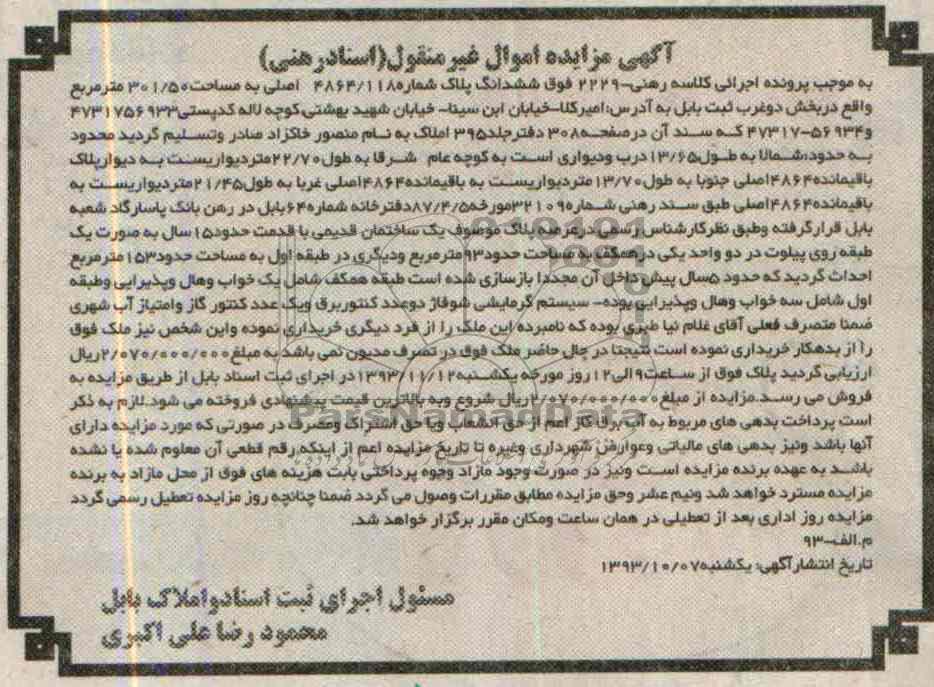 آگهی مزایده اموال غیر منقول(اسناد رهنی)
به موجب پرونده اجرائی کلاسه رهنی-۲۲۲۹ فوق ششدانگ پلاک شماره۴۸۶۴/۱۱۸ اصلی به مساحت۳۰۱/۵۰ مترمربع
واقع دربخش دوغرب ثبت بابل به آدرس:امیرکلا-خیابان ابن سینا- خیابان شهید بهشتی کوچه لاله کدپستی۴۷۳۱۷۵۶۹۳۳
و۵۶۹۳۴-۴۷۳۱۷ که سند آن درصفحه۳۰۸ دفترجلد۳۹۵ املاک به نام منصور خاکزاد صادر وتسلیم گردید محدود
به حدود:شمالا به طول۱۳/۶۵درب ودیواری است به کوچه عام شرقا به طول۲۲/۷۰متردیواریست به دیوارپلاک
باقیمانده۴۸۶۴اصلی جنوبا به طول۱۳/۷۰متردیواریست به باقیمانده۴۸۶۴اصلی غربا به طول۲۱/۴۵متردیواریست به
باقیمانده۴۸۶۴اصلی طبق سند رهنی شماره۳۲۱۰۹مورخه۸۷/۴/۵دفترخانه شماره۶۴بابل در رهن بانک پاسارگاد شعبه
بابل قرارگرفته وطبق نظرکارشناس رسمی درعرصه پلاک موصوف یک ساختمان قدیمی با قدمت حدود۱۵سال به صورت یک
طبقه روی پیلوت در دو واحد یکی درهمکف به مساحت حدود۹۳مترمربع ودیگری در طبقه اول به مساحت حدود۱۵۳مترمربع
احداث گردید که حدود ۵سال پیش داخل آن مجددا بازسازی شده است طبقه همکف شامل یک خواب وهال وپذیرایی وطبقه
اول شامل سه خواب وهال وپذیرایی بوده- سیستم گرمایشی شوفاژ دوعدد کنتوربرق ویک عدد کنتور گاز وامتیاز آب شهری
ضمنا متصرف فعلی آقای غلام نیا طبری بوده که نامبرده این ملک را از فرد دیگری خریداری نموده واین شخص نیز ملک فوق
را از بدهکار خریداری نموده است نتیجتا در حال حاضر ملک فوق در تصرف مدیون نمی باشد به مبلغ۲/۰۷۰/۰۰۰/۰۰۰ریال
ارزیابی گردید پلاک فوق از ساعت۹الی۱۲روز مورخه یکشنبه۱۳۹۳/۱۱/۱۲در اجرای ثبت اسناد بابل از طریق مزایده به
فروش می رسد.مزایده از مبلغ۲/۰۷۰/۰۰۰/۰۰۰ریال شروع وبه بالاترین قیمت پیشنهادی فروخته می شود.لازم به ذکر
است پرداخت بدهی های مربوط به آب برق گاز اعم از حق انشعاب ویا حق اشتراک ومصرف در صورتی که مورد مزایده دارای
آنها باشد ونیز بدهی های مالیاتی وعوارض شهرداری وغیره تا تاریخ مزایده اعم از اینکه رقم قطعی آن معلوم شده یا نشده
باشد به عهده برنده مزایده است ونیز در صورت وجود مازاد وجوه پرداختی بابت هزینه های فوق از محل مازاد به برنده
مزایده مسترد خواهد شد ونیم عشر وحق مزایده مطابق مقررات وصول می گردد ضمنا چنانچه روز مزایده تعطیل رسمی گردد
مزایده روز اداری بعد از تعطیلی در همان ساعت ومکان مقرر برگزار خواهد شد.
م.الف-۹۳
تاریخ انتشارآگهی: یکشنبه۱۳۹۳/۱۰/۰۷
مسئول اجرای ثبت اسنادواملاک بابل
محمود رضا علی اکبری
ParsNamadData